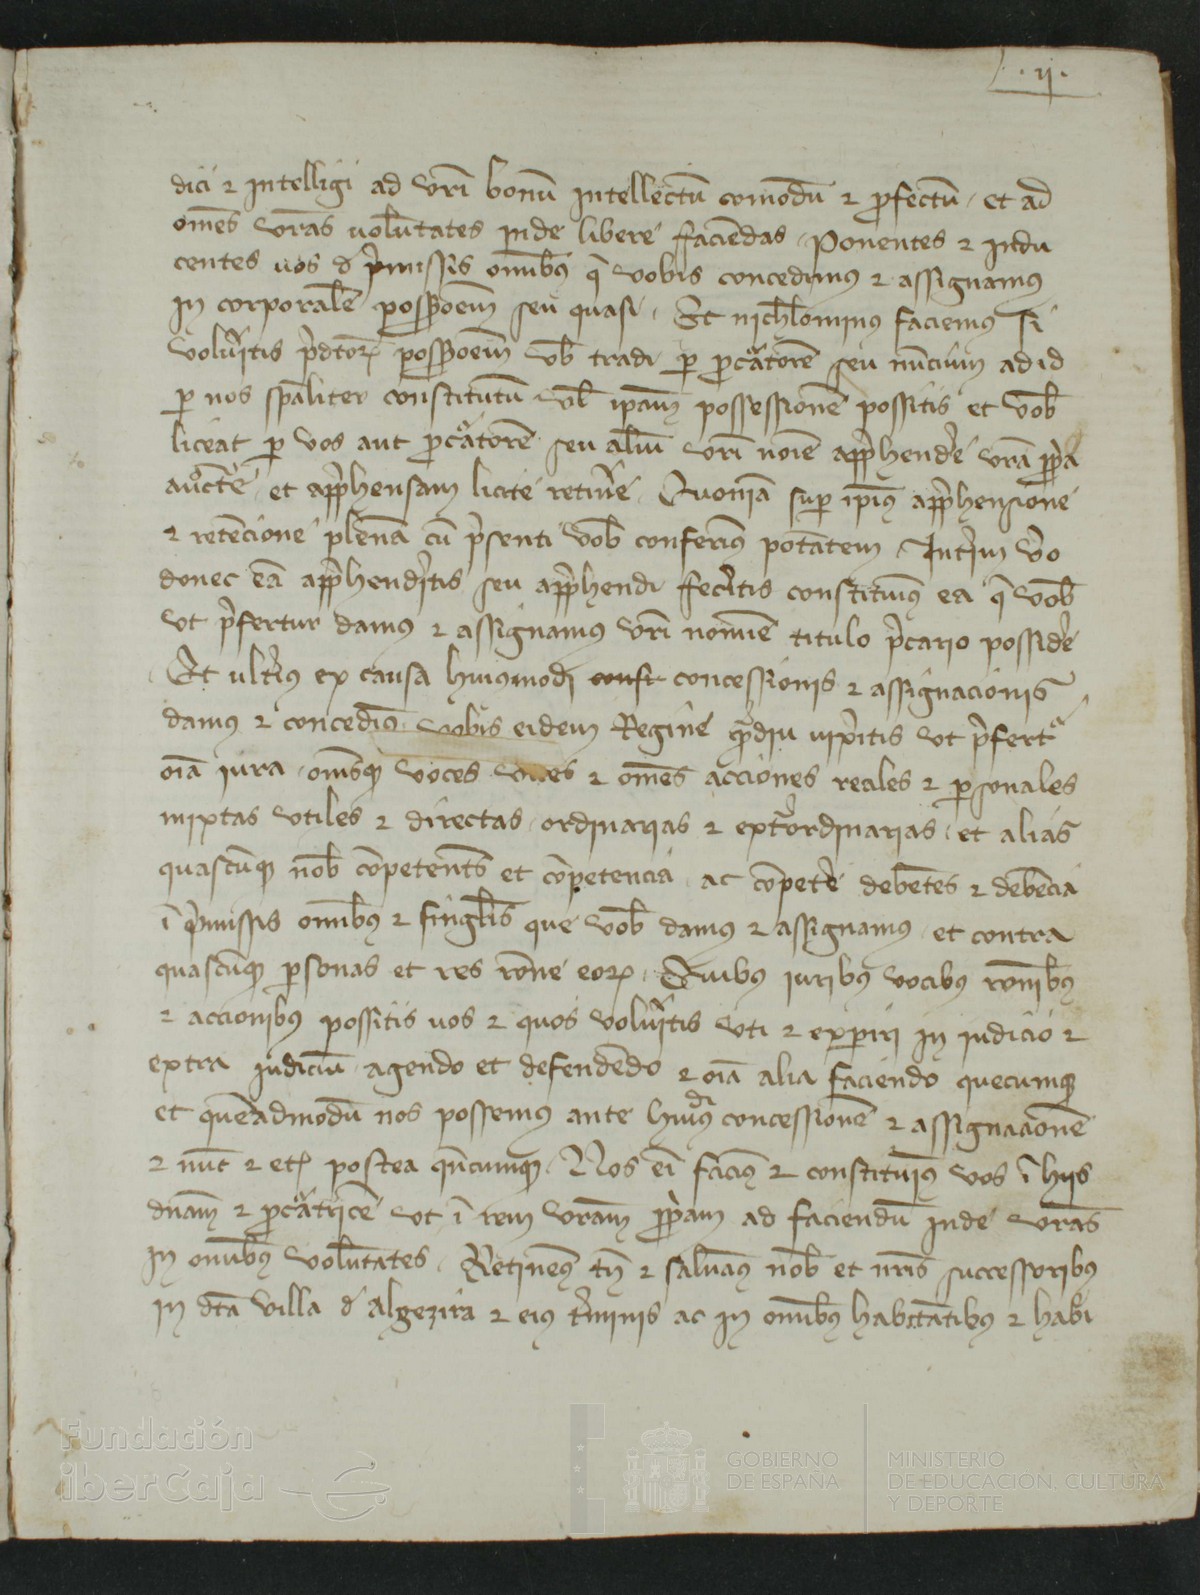 .ij.
dici ⁊ Intelligi ad vr̄i bonū Intellectū comodū ⁊ ꝓfectū et ad
om̄es vr̄as uolūtates inde libere faciendas. Ponentes ⁊ Indu
centes uos d̄ p̄missis om̄ibꝰ q̄ vobis concedimus ⁊ assignamus
in corporalē possoēm seu quasi. Et nichilominus faciemus si
voluītis p̄dcōꝝ possoēm vob̄ tradi ꝑ ꝓcātorē seu nūcium ad id
ꝑ nos sp̄aliter constitutū vl̄ ip̄am possessionē possitis et vob̄
liceat ꝑ vos aut ꝓcātorē seu aliū vr̄i noīe app̄hendēe vr̄a ꝓp̄a
auctē et app̄hensam licite retinēe. Quoniā suꝑ ip̄iꝰ app̄hensione
⁊ retēcione plenā cū p̄senti vob̄ conferimꝰ potātem. Intīm v̄o
donec eā app̄hendītis seu app̄hendi fecītis constituimꝰ ea q̄ vob̄
vt p̄fertur damus ⁊ assignamus vr̄i nomīe titulo p̄cario possidēe
Et ultīꝰ ex causa huiusmodi const concessionis ⁊ assignacionis
damus ⁊ concedimꝰ vobis eidem Regine qādiu vix̄itis vt p̄fertᵃ
oīa iura om̄esqꝫ voces vices ⁊ om̄es acciones reales ⁊ ꝑsonales
mixtas vtiles ⁊ directas ordinarias ⁊ extāordinarias et alias
quascūqꝫ nob̄ cōpetentēs et cōpetencia ac cōpetēe debentes ⁊ debēcia
ī p̄missis om̄ibꝰ ⁊ singl̄is que vob̄ damus ⁊ assignamus et contra
quascūqꝫ ꝑsonas et res rōne eoꝝ. Quibus iuribꝰ vocibꝰ rōnibꝰ
⁊ accionibꝰ possitis uos ⁊ quos voluītis vti ⁊ exꝑiri in iudicio ⁊
extra iudiciū agendo et defendēdo ⁊ oīa alia faciendo quecumqꝫ
et quēadmodū nos possemus ante huiusᵈⁱ concessionē ⁊ assignacionē
⁊ nūc ⁊ etꝫ postea qn̄cumqꝫ. Nos ēi facimꝰ ⁊ constituimꝰ vos ī hijs
dn̄am ⁊ ꝓcātricē vt ī rem vr̄am ꝓp̄am ad faciendū inde vr̄as
in om̄ibꝰ volūtates. Retinemꝰ tn̄ ⁊ saluamꝰ nob̄ et nr̄is successoribꝰ
in dcā villa d̄ Algezira ⁊ eius t̄minis ac in om̄ibꝰ habitātibꝰ ⁊ habi
Fundación
iberCaja
GOBIERNO
DE ESPAÑA
MINISTERIO
DE EDUCACIÓN, CULTURA
Y DEPORTE